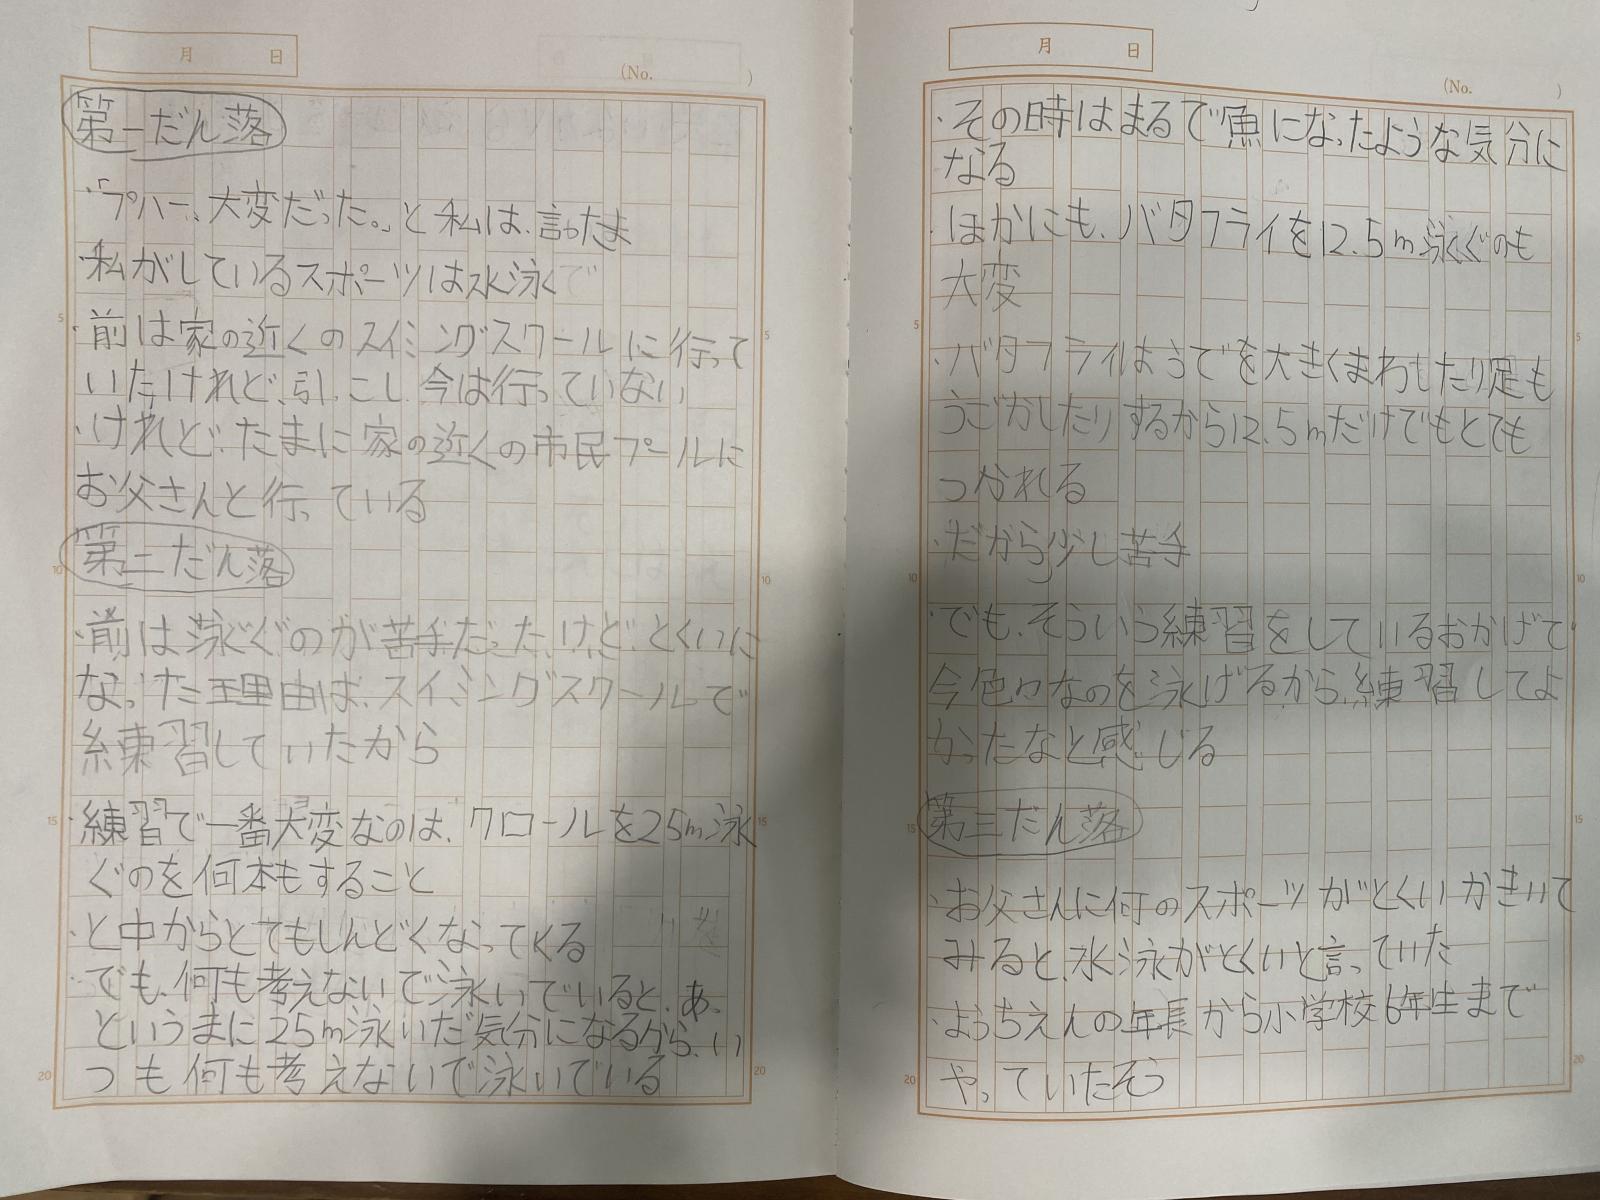 月 日
(No. )
第一だん落
・「プハー、大変だった。」と私は、言ったま
・私がしているスポーツは水泳で
・前は家の近くのスイミングスクールに行って
いたけれど、引っこし、今は行っていない
・けれど、たまに家の近くの市民プールに
お父さんと行っている
第二だん落
・前は泳ぐのが苦手だった、けど、とくいに
なった理由は、スイミングスクールで
練習していたから
・練習で一番大変なのは、クロールを25m泳
ぐのを何本もすること
・と中からとてもしんどくなってくる
・でも、何も考えないで泳いでいると、あっ
というまに25m泳いだ気分になるから、い
つも何も考えないで泳いでいる
月 日
(No. )
・その時はまるで魚になったような気分に
なる
・ほかにも、バタフライを12.5m泳ぐのも
大変
・バタフライはうでを大きくまわしたり足も
うごかしたりするから12.5mだけでもとても
つかれる
・だから少し苦手
・でも、そういう練習をしているおかげで
今色々なのを泳げるから、練習してよ
かったなと感じる
第三だん落
・お父さんに何のスポーツがとくいかきいて
みると、水泳がとくいと言っていた
・ようちえんの年長から小学校6年生まで
やっていたそう